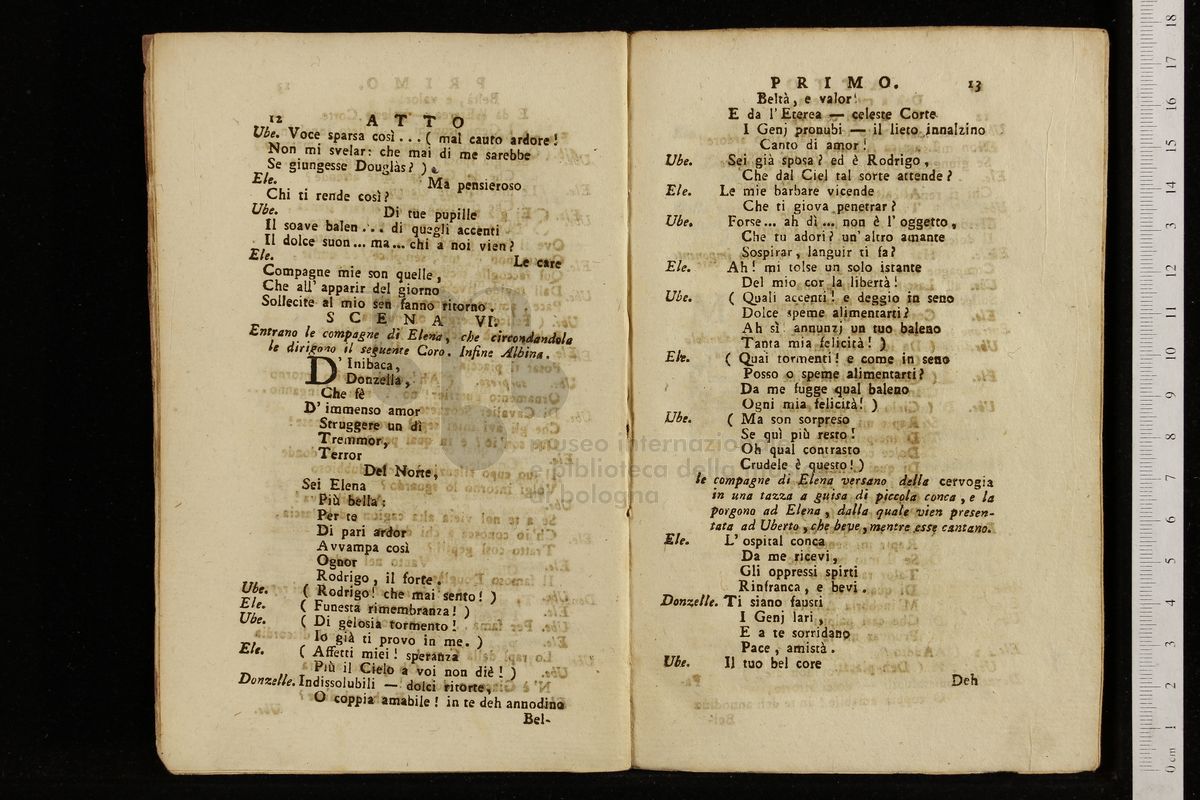 12 ATTO
Ube. Voce sparsa così... ( mal cauto ardore!
Non mi svelar: che mai di me sarebbe
Se giungesse Douglàs? ).
Ele. Ma pensieroso
Chi ti rende così?
Ube. Di tue pupille
Il soave balen... di quegli accenti
Il dolce suon... ma... chi a noi vien?
Ele. Le care
Compagne mie son quelle,
Che all' apparir del giorno
Sollecite al mio sen fanno ritorno.
SCENA VI.
Entrano le compagne di Elena, che circondandola
le dirigono il seguente Coro. Infine Albina.
D' Inibaca,
Donzella,
Che fè
D' immenso amor
Struggere un dì
Tremmor,
Terror
Del Norte,
Sei Elena
Più bella:
Per te
Di pari ardor
Avvampa così
Ognor
Rodrigo, il forte.
Ube. ( Rodrigo! che mai sento! )
Ele. ( Funesta rimembranza! )
Ube. ( Di gelosia tormento!
Io già ti provo in me. )
Ele. ( Affetti miei! speranza
Più il Cielo a voi non diè! )
Donzelle. Indissolubili — dolci ritorte,
O coppia amabile! in te deh annodino
Bel-
PRIMO. 13
Beltà, e valor!
E da l' Eterea — celeste Corte
I Genj pronubi — il lieto innalzino
Canto di amor!
Ube. Sei già sposa? ed è Rodrigo,
Che dal Ciel tal sorte attende?
Ele. Le mie barbare vicende
Che ti giova penetrar?
Ube. Forse... ah dì... non è l' oggetto,
Che tu adori? un' altro amante
Sospirar, languir ti fa?
Ele. Ah! mi tolse un solo istante
Del mio cor la libertà!
Ube. ( Quali accenti! e deggio in seno
Dolce speme alimentarti?
Ah sì annunzj un tuo baleno
Tanta mia felicità! )
Ele. ( Quai tormenti! e come in seno
Posso o speme alimentarti?
Da me fugge qual baleno
Ogni mia felicità! )
Ube. ( Ma son sorpreso
Se quì più resto!
Oh qual contrasto
Crudele è questo! )
le compagne di Elena versano della cervogia
in una tazza a guisa di piccola conca, e la
porgono ad Elena, dalla quale vien presen-
tata ad Uberto, che beve, mentre esse cantano.
Ele. L' ospital conca
Da me ricevi,
Gli oppressi spirti
Rinfranca, e bevi.
Donzelle. Ti siano fausti
I Genj lari,
E a te sorridano
Pace, amistà.
Ube. Il tuo bel core
Deh
museo internazionale
e biblioteca della musica
di bologna